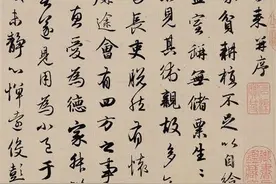 來并序
家貧耕植不足以自給
盈室缾無儲粟生生
見其術親故多
長吏脫然有懷
途會有四方之事
惠愛為德家叔
遂見用為小邑于
未靜心憚遠役彭